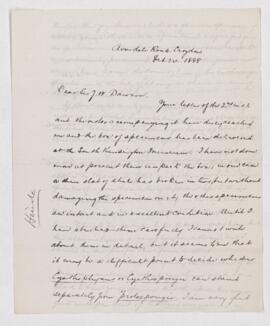 Avondale Road, Croydon
Feb 20. 1888
Dear Sir J. W. Dawson
Your letter of the 2nd inst
and the notes accompanying it have duly reached
me and the box of specimens has been delivered
at the South Kensington Museum. I have not done
more at present than unpack the box; in one case
a thin slab of slate has broken in two but without
damaging the specimen on it; the other specimens
are intact and in excellent condition. Until I
have studied them carefully I cannot write
about them in detail, but it seems to me that
it will be a difficult point to decide whether
Cyathophycus or Cyathospongia can stand
separately from Protospongia. I am very glad
Hinde